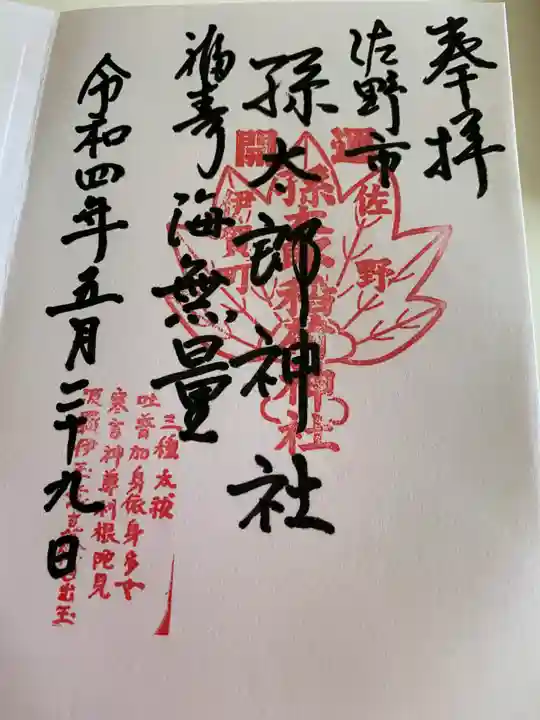 奉拝
佐野市
孫太郎神社
福寿海無量
令和四年五月二十九日
開運
佐野
伊賀町
孫太郎稲荷神社
三種太祓
吐普加身依身多女
寒言神尊利根陀見
出玉